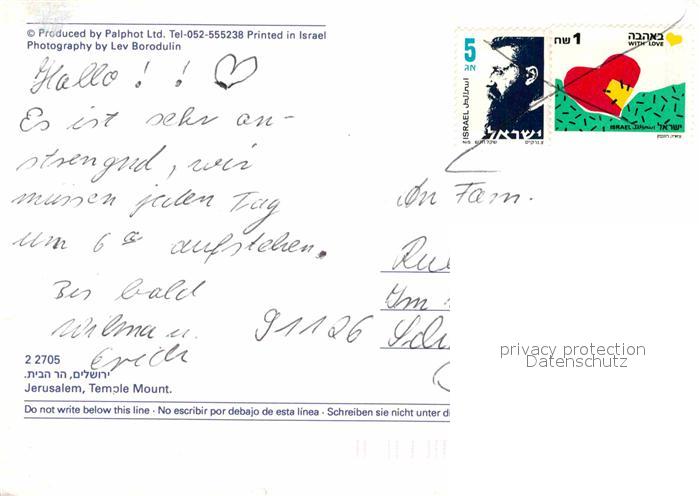 © Produced by Palphot Ltd. Tel-052-555238 Printed in Israel
Photography by Lev Borodulin
Hallo! ! ♡
Es ist sehr an-
strengnd, wir
müssen jeden Tag
um 6 00 aufstehen.
Bis bald
Wilma u.
Erich
2 2705
ירושלים, הר הבית.
Jerusalem, Temple Mount.
Do not write below this line · No escribir por debajo de esta línea · Schreiben sie nicht unter di
5
אג
ISRAEL
ישראל
1 שח
באהבה
WITH LOVE
ISRAEL
ישראל
An Fam.
Im
91126
privacy protection
Datenschutz